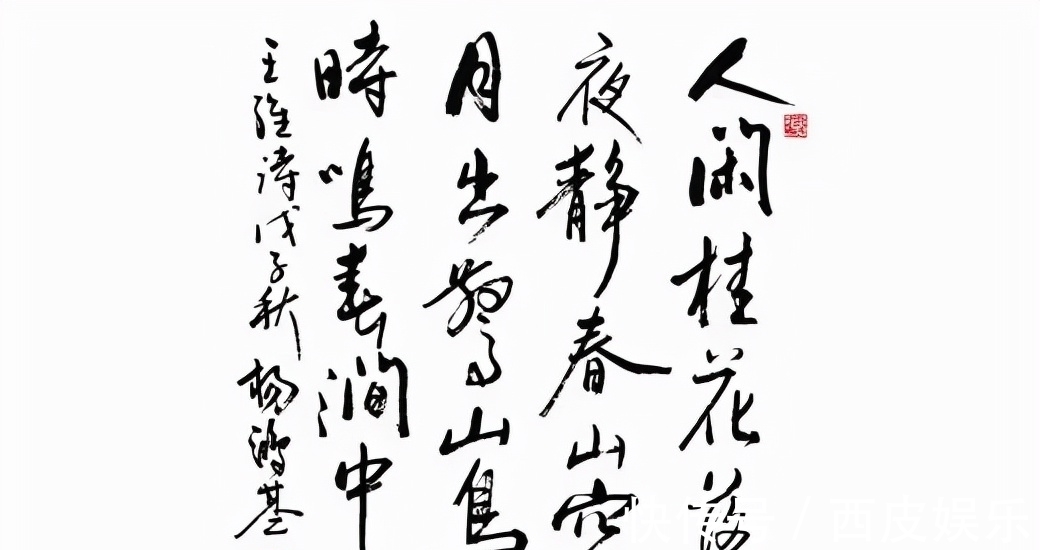 人閑桂花落
夜静春山空
月出驚山鳥
時鳴春澗中
王維詩戊子秋楊鴻基
快传号 / 西皮娱乐